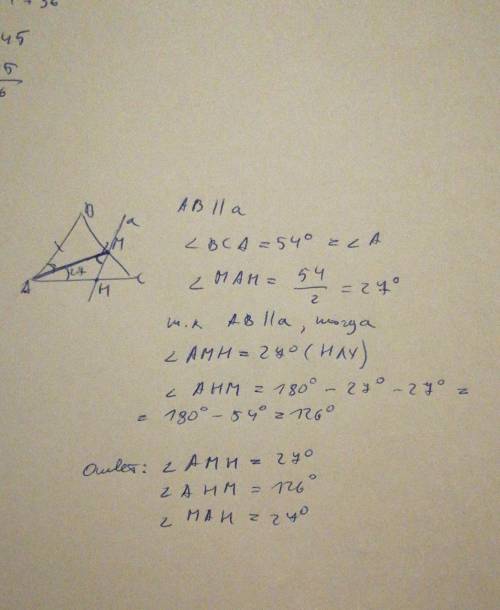 45
B
a
M
27
A
H
C
AB || a
∠ BCA = 54° = ∠ A
∠ MAH = 54/2 = 27°
т.к AB || a, тогда
∠ AMH = 27° (НЛУ)
∠ AHM = 180° - 27° - 27° =
= 180° - 54° = 126°
Ответ: ∠ AMH = 27°
∠ AHM = 126°
∠ MAH = 27°